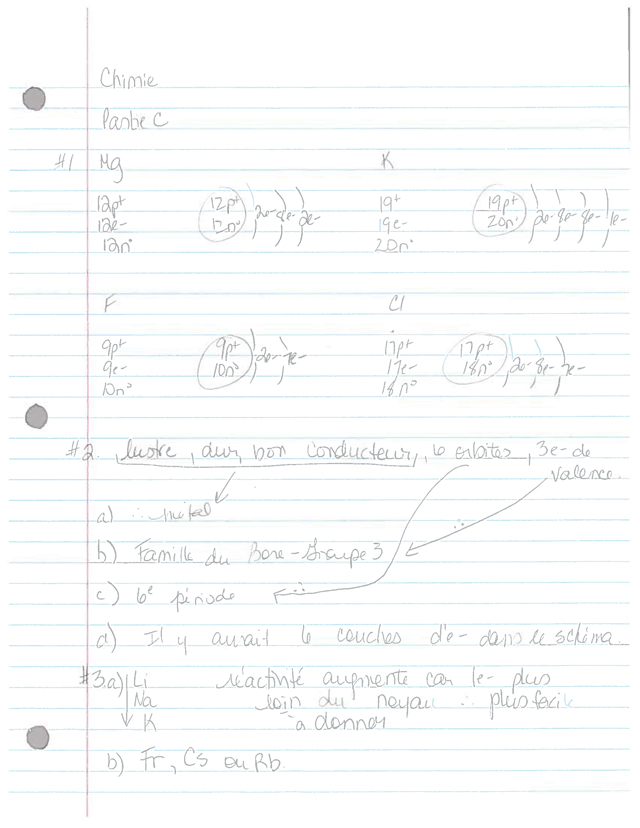 Chimie
Partie C
#1 Mg K
12p+ 12p+ 2e- 8e- 2e- 19+ 19p+ 2e- 8e- 8e- 1e-
12e- 12n° 19e- 20n°
12n° 20n°
F Cl
9p+ 9p+ 2e- 7e- 17p+ 17p+ 2e- 8e- 7e-
9e- 10n° 17e- 18n°
10n° 18n°
#2. lustre, dur, bon conducteur, 6 orbites, 3e- de
valence.
a) ∴ métal
b) Famille du Bore - Groupe 3 ∴
c) 6e période ∴
d) Il y aurait 6 couches d'e- dans le schéma.
#3.a) Li réactivité augmente car 1e- plus
Na loin du noyau ∴ plus facile
K à donner
b) Fr, Cs ou Rb.